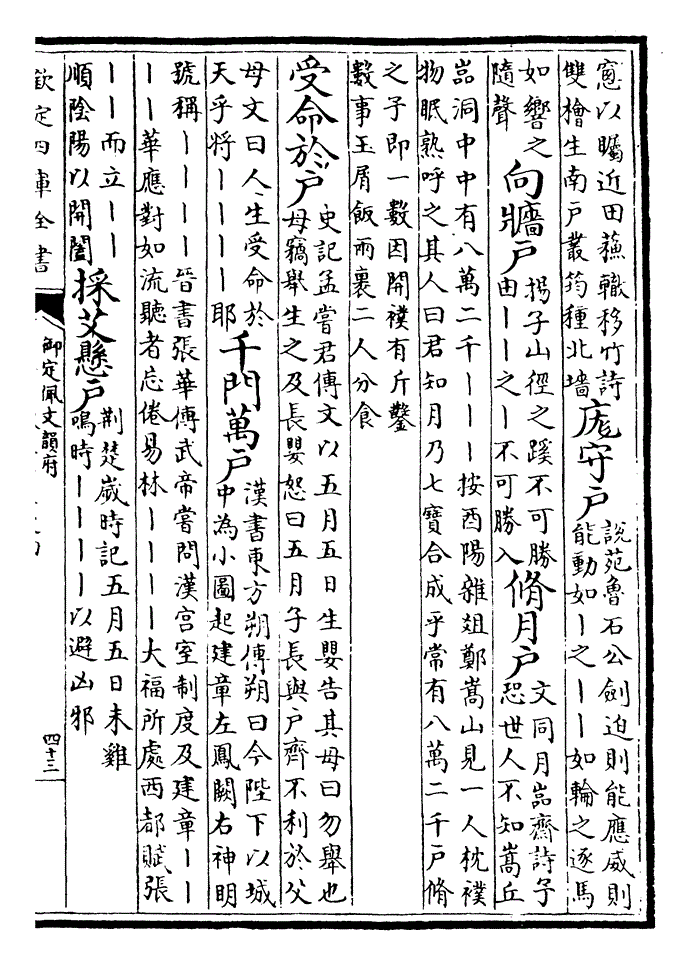 窻以矚近田蘓轍移竹詩
雙檜生南戶叢筠種北墻
庬守戶
說苑魯石公劍迫則能應威則
能動如丨之丨丨如輪之逐馬
如響之
隨聲
向牆戶
揚子山徑之蹊不可勝
由丨丨之丨不可勝入
脩月戶
文同月嵓齋詩子
恐世人不知嵩丘
嵓洞中中有八萬二千丨丨丨按酉陽雜俎鄭嵩山見一人枕襆
物眠熟呼之其人曰君知月乃七寶合成乎常有八萬二千戶脩
之子即一數因開襆有斤鑿
數事玉屑飯兩裹二人分食
受命於戶
史記孟嘗君傳文以五月五日生嬰告其母曰勿舉也
母竊舉生之及長嬰怒曰五月子長與戶齊不利於父
母文曰人生受命於
天乎将丨丨丨丨耶
千門萬戶
漢書東方朔傳朔曰今陛下以城
中為小圖起建章左鳳闕右神明
號稱丨丨丨丨晉書張華傳武帝嘗問漢宫室制度及建章丨丨
丨丨華應對如流聽者忘倦易林丨丨丨丨大福所處西都賦張
丨丨而立丨丨
順陰陽以開闔
採艾懸戶
荆楚歲時記五月五日未雞
鳴時丨丨丨丨以避凶邪
欽定四庫全書
御定佩文韻府
四十三